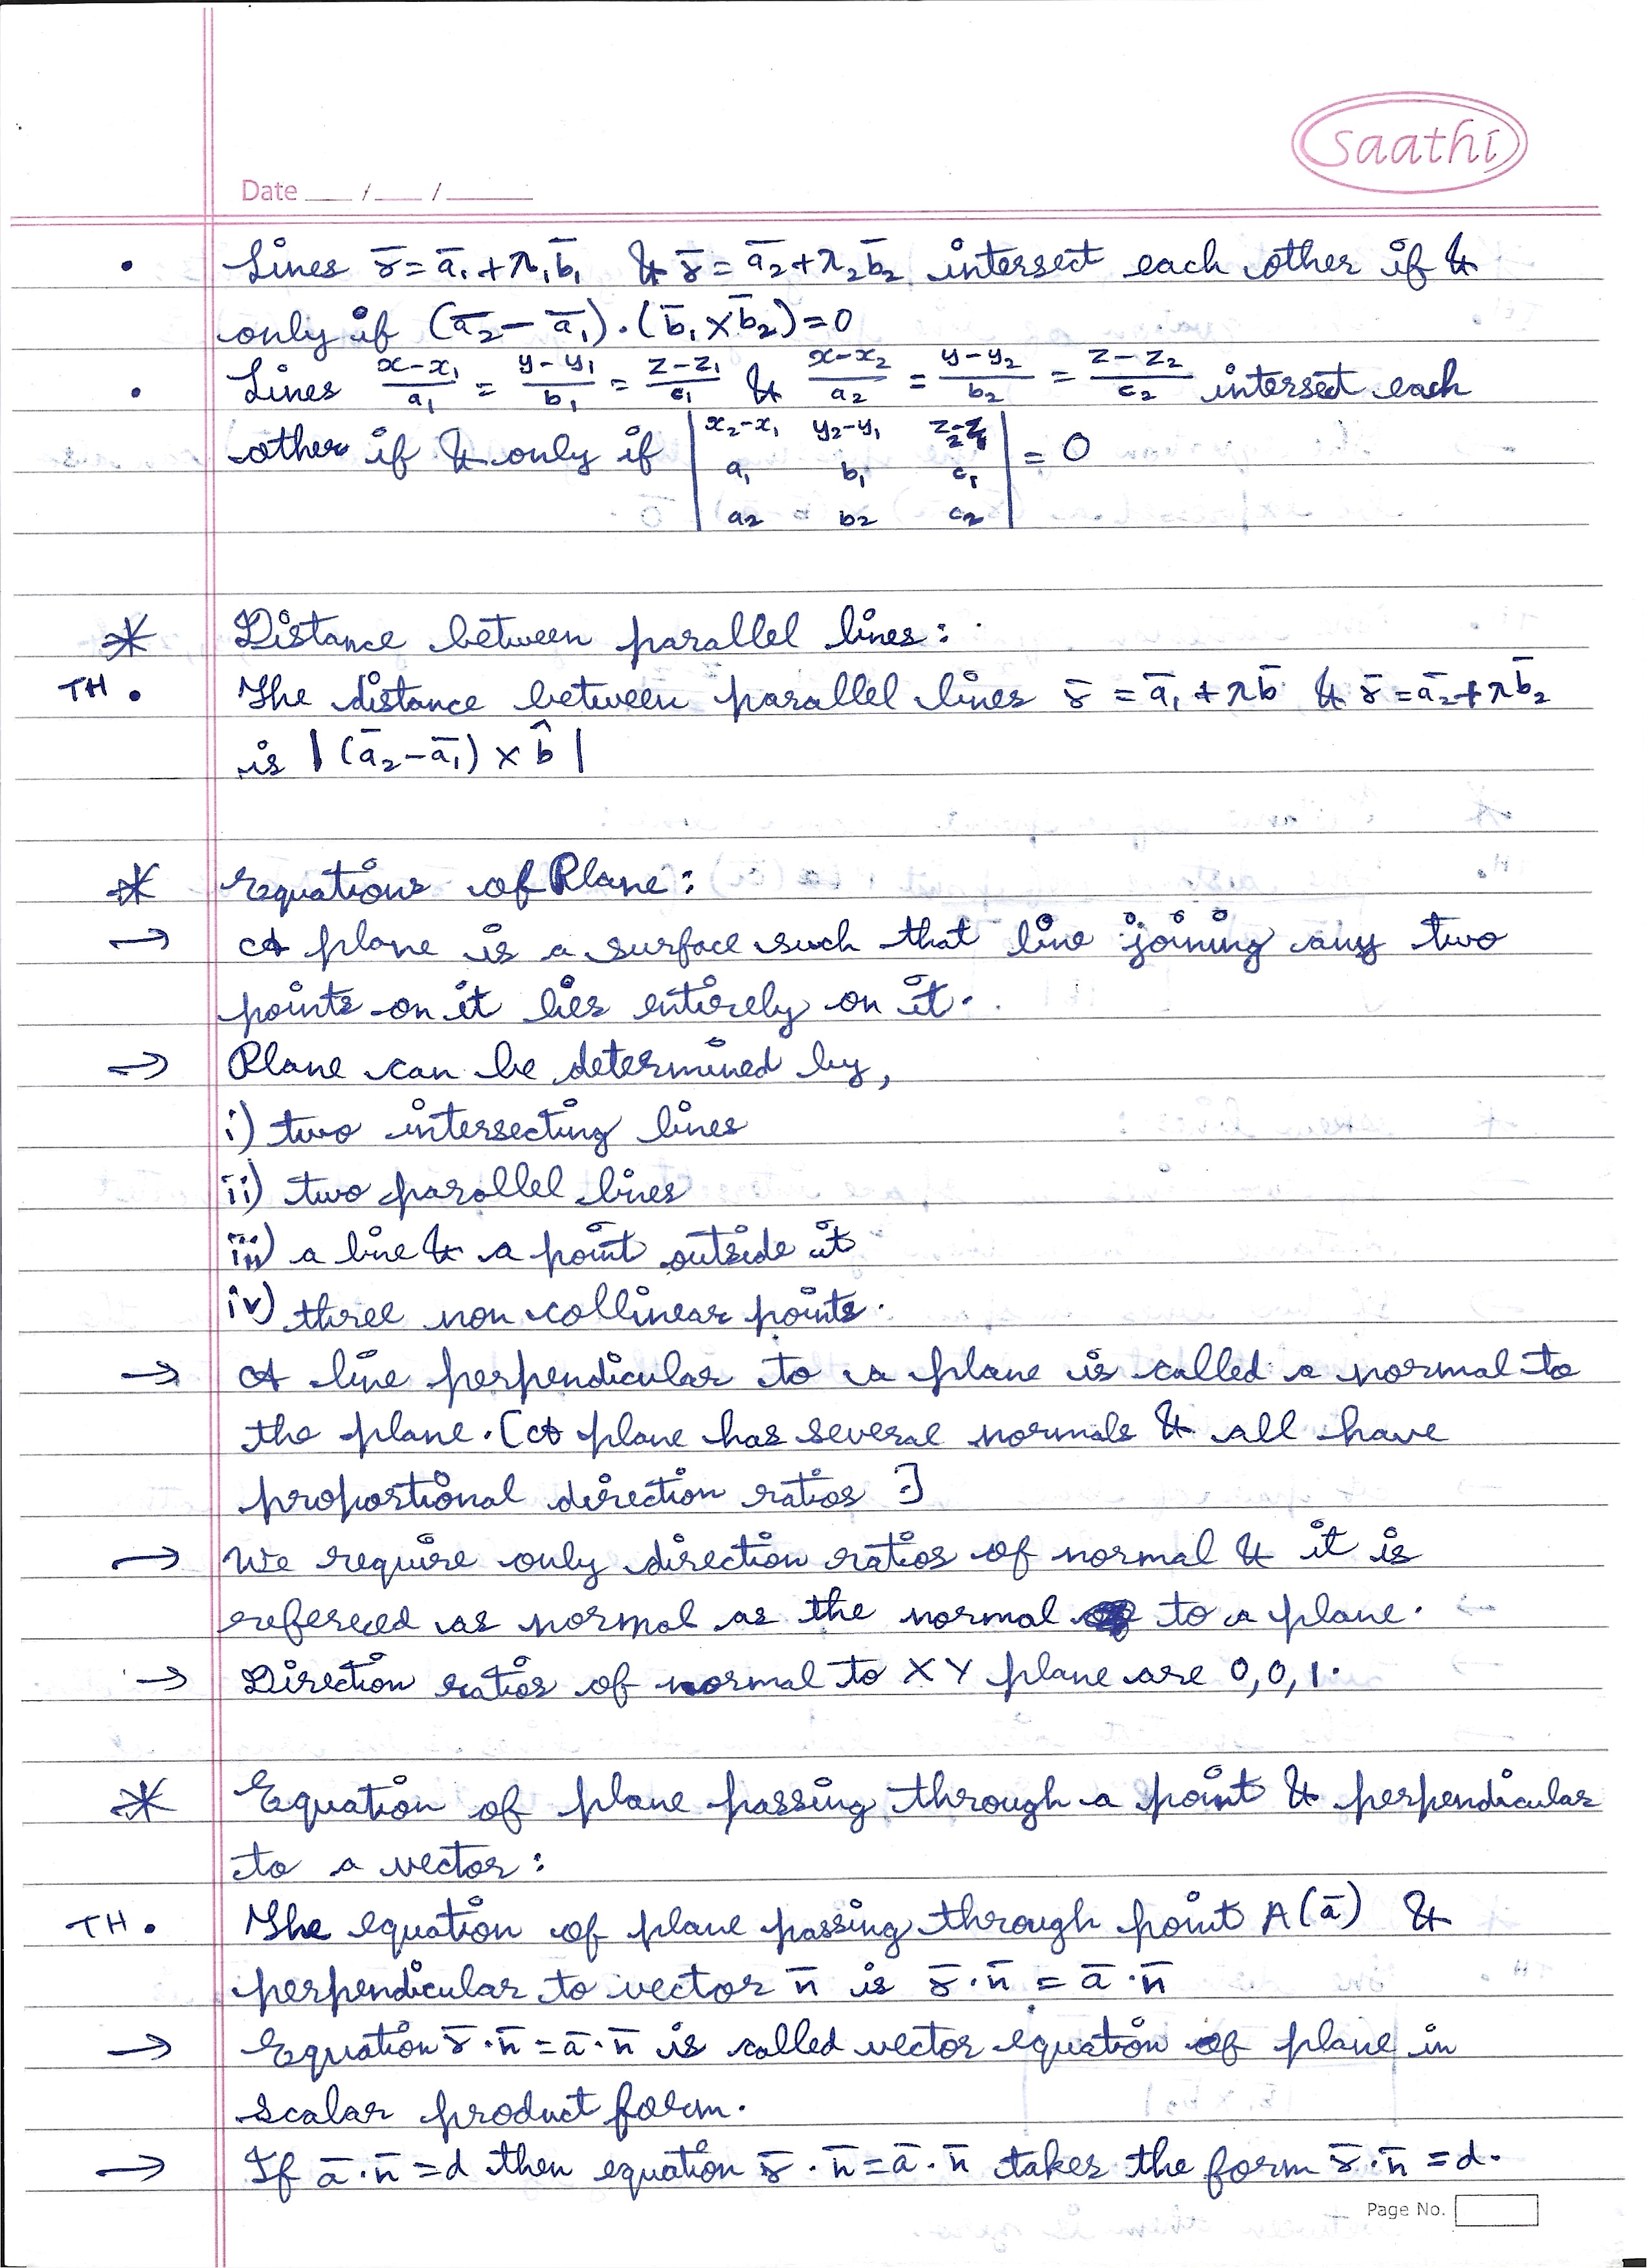 saathi
Date ___/___/_____
• Lines r̄ = ā₁ + λ₁b̄₁ & r̄ = ā₂ + λ₂b̄₂ intersect each other if &
only if (ā₂ – ā₁) · (b̄₁ × b̄₂) = 0
• Lines x-x₁/a₁ = y-y₁/b₁ = z-z₁/c₁ & x-x₂/a₂ = y-y₂/b₂ = z-z₂/c₂ intersect each
other if & only if | x₂-x₁ y₂-y₁ z₂-z₁ | = 0
a₁ b₁ c₁
a₂ b₂ c₂
* Distance between parallel lines:
TH. The distance between parallel lines r̄ = ā₁ + λb̄ & r̄ = ā₂ + λb̄₂
is | (ā₂ – ā₁) × b̂ |
* Equations of Plane:
→ A plane is a surface such that line joining any two
points on it lies entirely on it.
→ Plane can be determined by,
i) two intersecting lines
ii) two parallel lines
iii) a line & a point outside it
iv) three non collinear points.
→ A line perpendicular to a plane is called a normal to
the plane. [A plane has several normals & all have
proportional direction ratios.]
→ We require only direction ratios of normal & it is
refereed as normal as the normal to a plane.
→ Direction ratios of normal to XY plane are 0,0,1.
* Equation of plane passing through a point & perpendicular
to a vector:
TH. The equation of plane passing through point A(ā) &
perpendicular to vector n̄ is r̄·n̄ = ā·n̄
→ Equation r̄·n̄ = ā·n̄ is called vector equation of plane in
scalar product form.
→ If ā·n̄ = d then equation r̄·n̄ = ā·n̄ takes the form r̄·n̄ = d.
Page No.